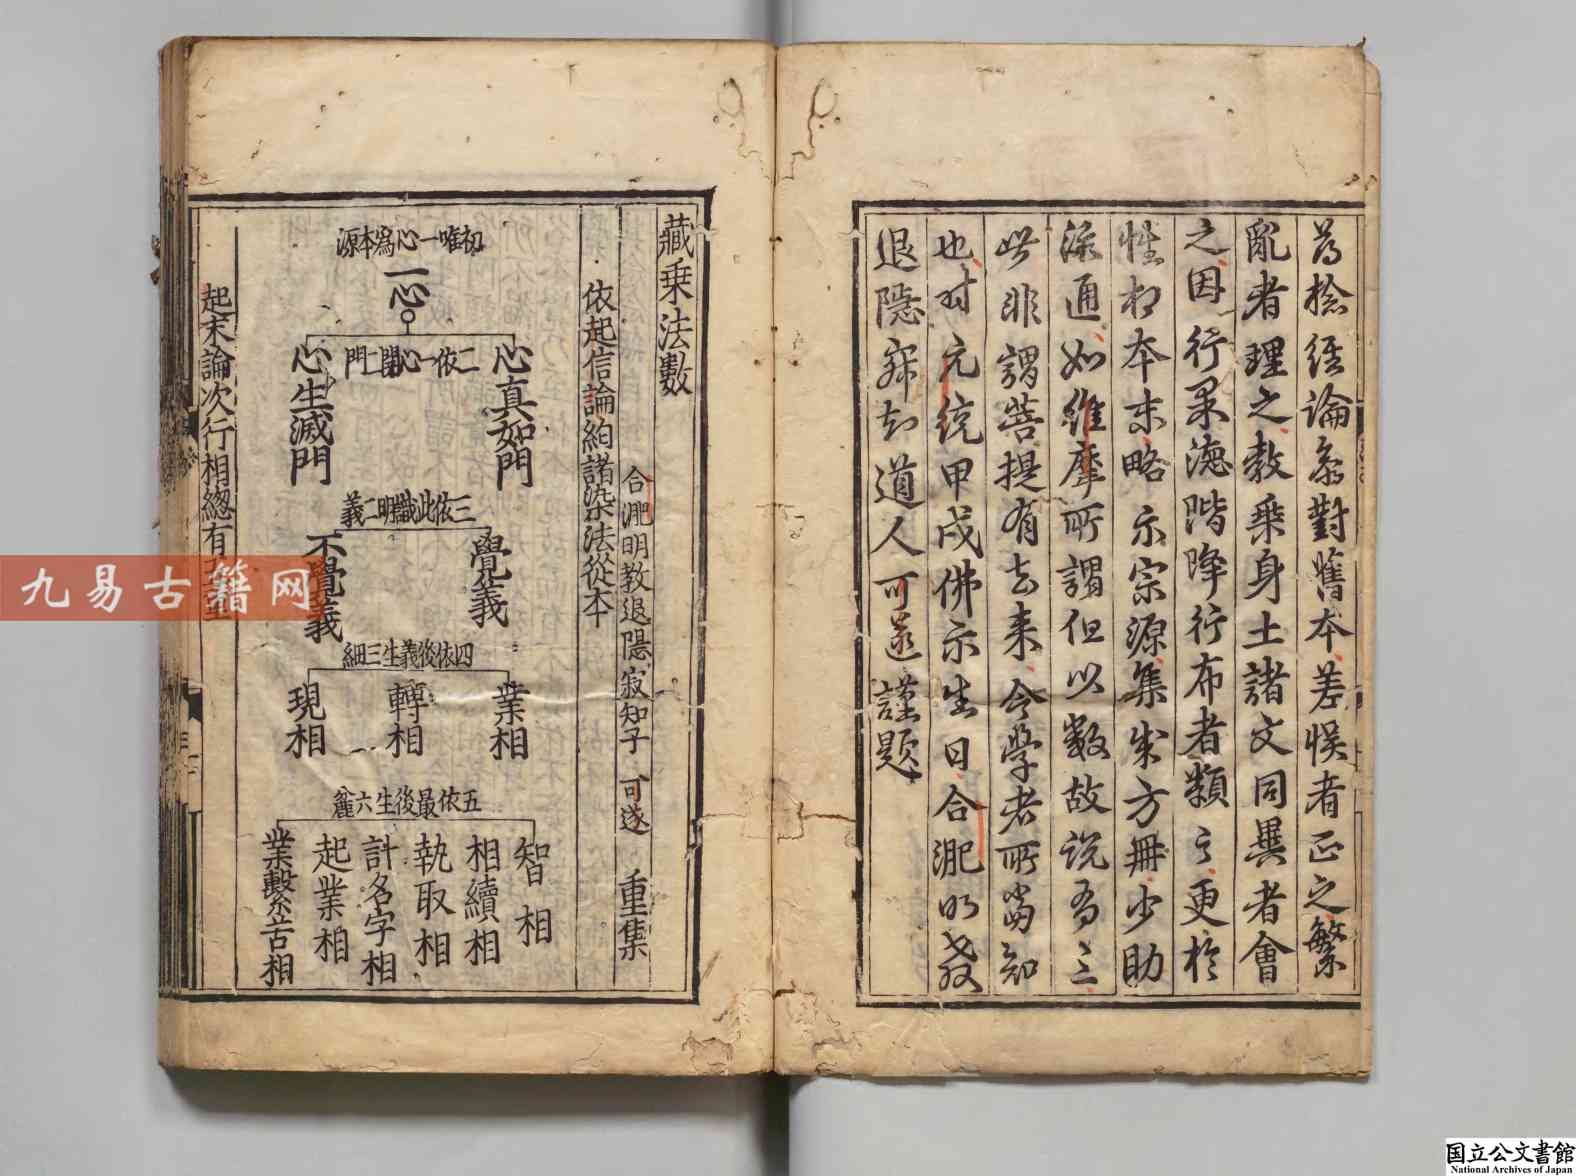 為撿經論予對舊本差悞者正之繁
亂者理之教乗身土諸文同異者會
之因行果德階降行布者類之更於
性相本末略示宗源集成方冊少助
深通如維摩所謂但以數故說有三
世非謂菩提有去来今学者所當知
也时元統甲戌佛示生日合淝明教
退隱寂知道人可遂謹題
藏乗法數
合淝明教退隱寂知子可遂重集
依起信論絢諸染法從本
初唯一心為本源
一心
二依一心開二門
心真如門
心生滅門
三依此識明二義
覺義
不覺義
四依後義生三細
業相
轉相
現相
五依最後生六麁
智相
相續相
執取相
計名字相
起業相
業繫苦相
起末論次行相總有
九易古籍网
国立公文書館
National Archives of Japan